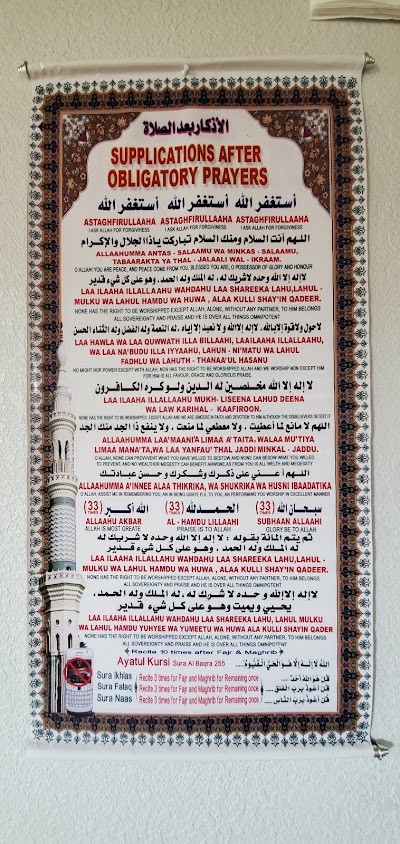 الاذكار بعد الصلاة
SUPPLICATIONS AFTER
OBLIGATORY PRAYERS
أستغفر الله أستغفر الله أستغفر الله
ASTAGHFIRULLAAHA ASTAGHFIRULLAAHA ASTAGHFIRULLAAHA
I ASK ALLAH FOR FORGIVENESS I ASK ALLAH FOR FORGIVENESS I ASK ALLAH FOR FORGIVENESS
اللهم أنت السلام ومنك السلام تباركت ياذا الجلال والإكرام
ALLAAHUMMA ANTAS - SALAAMU WA MINKAS - SALAAMU,
TABAARAKTA YA THAL - JALAALI WAL - IKRAAM.
O ALLAH YOU ARE PEACE, AND PEACE COME FROM YOU, BLESSED YOU ARE, O POSSESSOR OF GLORY AND HONOUR
لا إله إلا الله وحده لاشريك له، له الملك وله الحمد، وهو على كل شيء قدير
LAA ILAAHA ILLALLAAHU WAHDAHU LAA SHAREEKA LAHU,LAHUL -
MULKU WA LAHUL HAMDU WA HUWA , ALAA KULLI SHAY'IN QADEER.
NONE HAS THE RIGHT TO BE WORSHIPPED EXCEPT ALLAH, ALONE, WITHOUT ANY PARTNER, TO HIM BELONGS
ALL SOVEREIGNTY AND PRAISE AND HE IS OVER ALL THINGS OMNIPOTENT
لاحول ولاقوة إلا بالله، لا إله إلا الله ولا نعبد إلا إياه، له النعمة وله الفضل وله الثناء الحسن
LAA HAWLA WA LAA QUWWATH ILLA BILLAAHI, LAAILAAHA ILLALLAAHU,
WA LAA NA'BUDU ILLA IYYAAHU, LAHUN - NI'MATU WA LAHUL
FADHLU WA LAHUTH - THANAA'UL HASANU
NO MIGHT NOR POWER EXCEPT WITH ALLAH, NON HAS THE RIGHT TO BE WORSHIPPED EXCEPT ALLAH AND WE WORSHIP NON EXCEPT HIM
FOR HIM IS ALL FAVOUR, GRACE AND GLORIOUS PRAISE.
لا إله إلا الله مخلصين له الدين ولو كره الكافرون
LAA ILAAHA ILLALLAAHU MUKH- LISEENA LAHUD DEENA
WA LAW KARIHAL - KAAFIROON.
NONE HAS THE RIGHT TO BE WORSHIPPED EXCEPT ALLAH AND WE ARE SINCERE IN FAITH AND DEVOTION TO HIM ALTHOUGH THE DISBELIEVERS DETEST IT
اللهم لا مانع لما أعطيت ، ولا معطي لما منعت ، ولا ينفع ذا الجد منك الجد
ALLAAHUMMA LAA'MAANI'A LIMAA A'TAITA, WALAA MU'TIYA
LIMAA MANA'TA,WA LAA YANFAU' THAL JADDI MINKAL - JADDU.
O ALLAH, NONE CAN PREVENT WHAT YOU HAVE WILLED TO BESTOW AND NONE CAN BESOW WHAT YOU WILLED
TO PREVENT, AND NO WEALTH OR MEJESTY CAN BENEFIT ANYONE AS FROM YOU IS ALL WEALTH AND MEJESTY
اللهم أعنى على ذكرك وشكرك وحسن عبادتك
ALLAAHUMMA A'INNEE ALAA THIKRIKA, WA SHUKRIKA WA HUSNI IBAADATIKA
O ALLAH, ASSIST ME IN REMEMBERING YOU, AN IN BEING GRATEFUL TO YOU, AN PERFORMING YOU WORSHIP IN EXCELLENT MANNER
سبحان الله (33) الحمد لله (33) الله أكبر (33)
ALLAAHU AKBAR AL - HAMDU LILLAAHI SUBHAAN ALLAAHI
ALLAH IS MOST CREATE PRAISE IS TO ALLAH GLORY BE TO ALLAH
ثم يتم المائة بقوله : لا إله إلا الله وحده لا شريك له
له الملك وله الحمد ، وهو على كل شيء قدير
LAA ILAAHA ILLALLAHU WAHDAHU LAA SHAREEKA LAHU,LAHUL -
MULKU WA LAHUL HAMDU WA HUWA , ALAA KULLI SHAY'IN QADEER.
NONE HAS THE RIGHT TO BE WORSHIPPED EXCEPT ALLAH, ALONE, WITHOUT ANY PARTNER, TO HIM BELONGS
ALL SOVEREIGNTY AND PRAISE AND HE IS OVER ALL THINGS OMNIPOTENT
لا إله إلا الله وحده لا شرك له ، له الملك وله الحمد،
يحيي ويميت وهو على كل شي قدير
LAA ILAAHA ILLALLAHU WAHDAHU LAA SHAREEKA LAHU, LAHUL MULKU
WA LAHUL HAMDU YUHYEE WA YUMEETU WA HUWA ALA KULLI SHAYIN QADER
NONE HAS THE RIGHT TO BE WORSHIPPED EXCEPT ALLAH, ALONE, WITHOUT ANY PARTNER, TO HIM BELONGS
ALL SOVEREIGNTY AND PRAISE AND HE IS OVER ALL THINGS OMNIPOTENT
Recite 10 times after Fajr & Maghrib
Ayatul Kursi Sura Al Baqra 255 اللهُ لَا إِلَهَ إِلَّا هُوَ الْحَيُّ الْقَيُّومُ.....
Sura Ikhlas Recite 3 times for Fajr and Maghrib for Remaining once قُل هُوَ اللهُ أَحَدٌ.....
Sura Falaq Recite 3 times for Fajr and Maghrib for Remaining once قُل أَعُوذُ بِرَبِّ الْفَلَقِ.....
Sura Naas Recite 3 times for Fajr and Maghrib for Remaining once قُل أَعُوذُ بِرَبِّ النَّاسِ.....